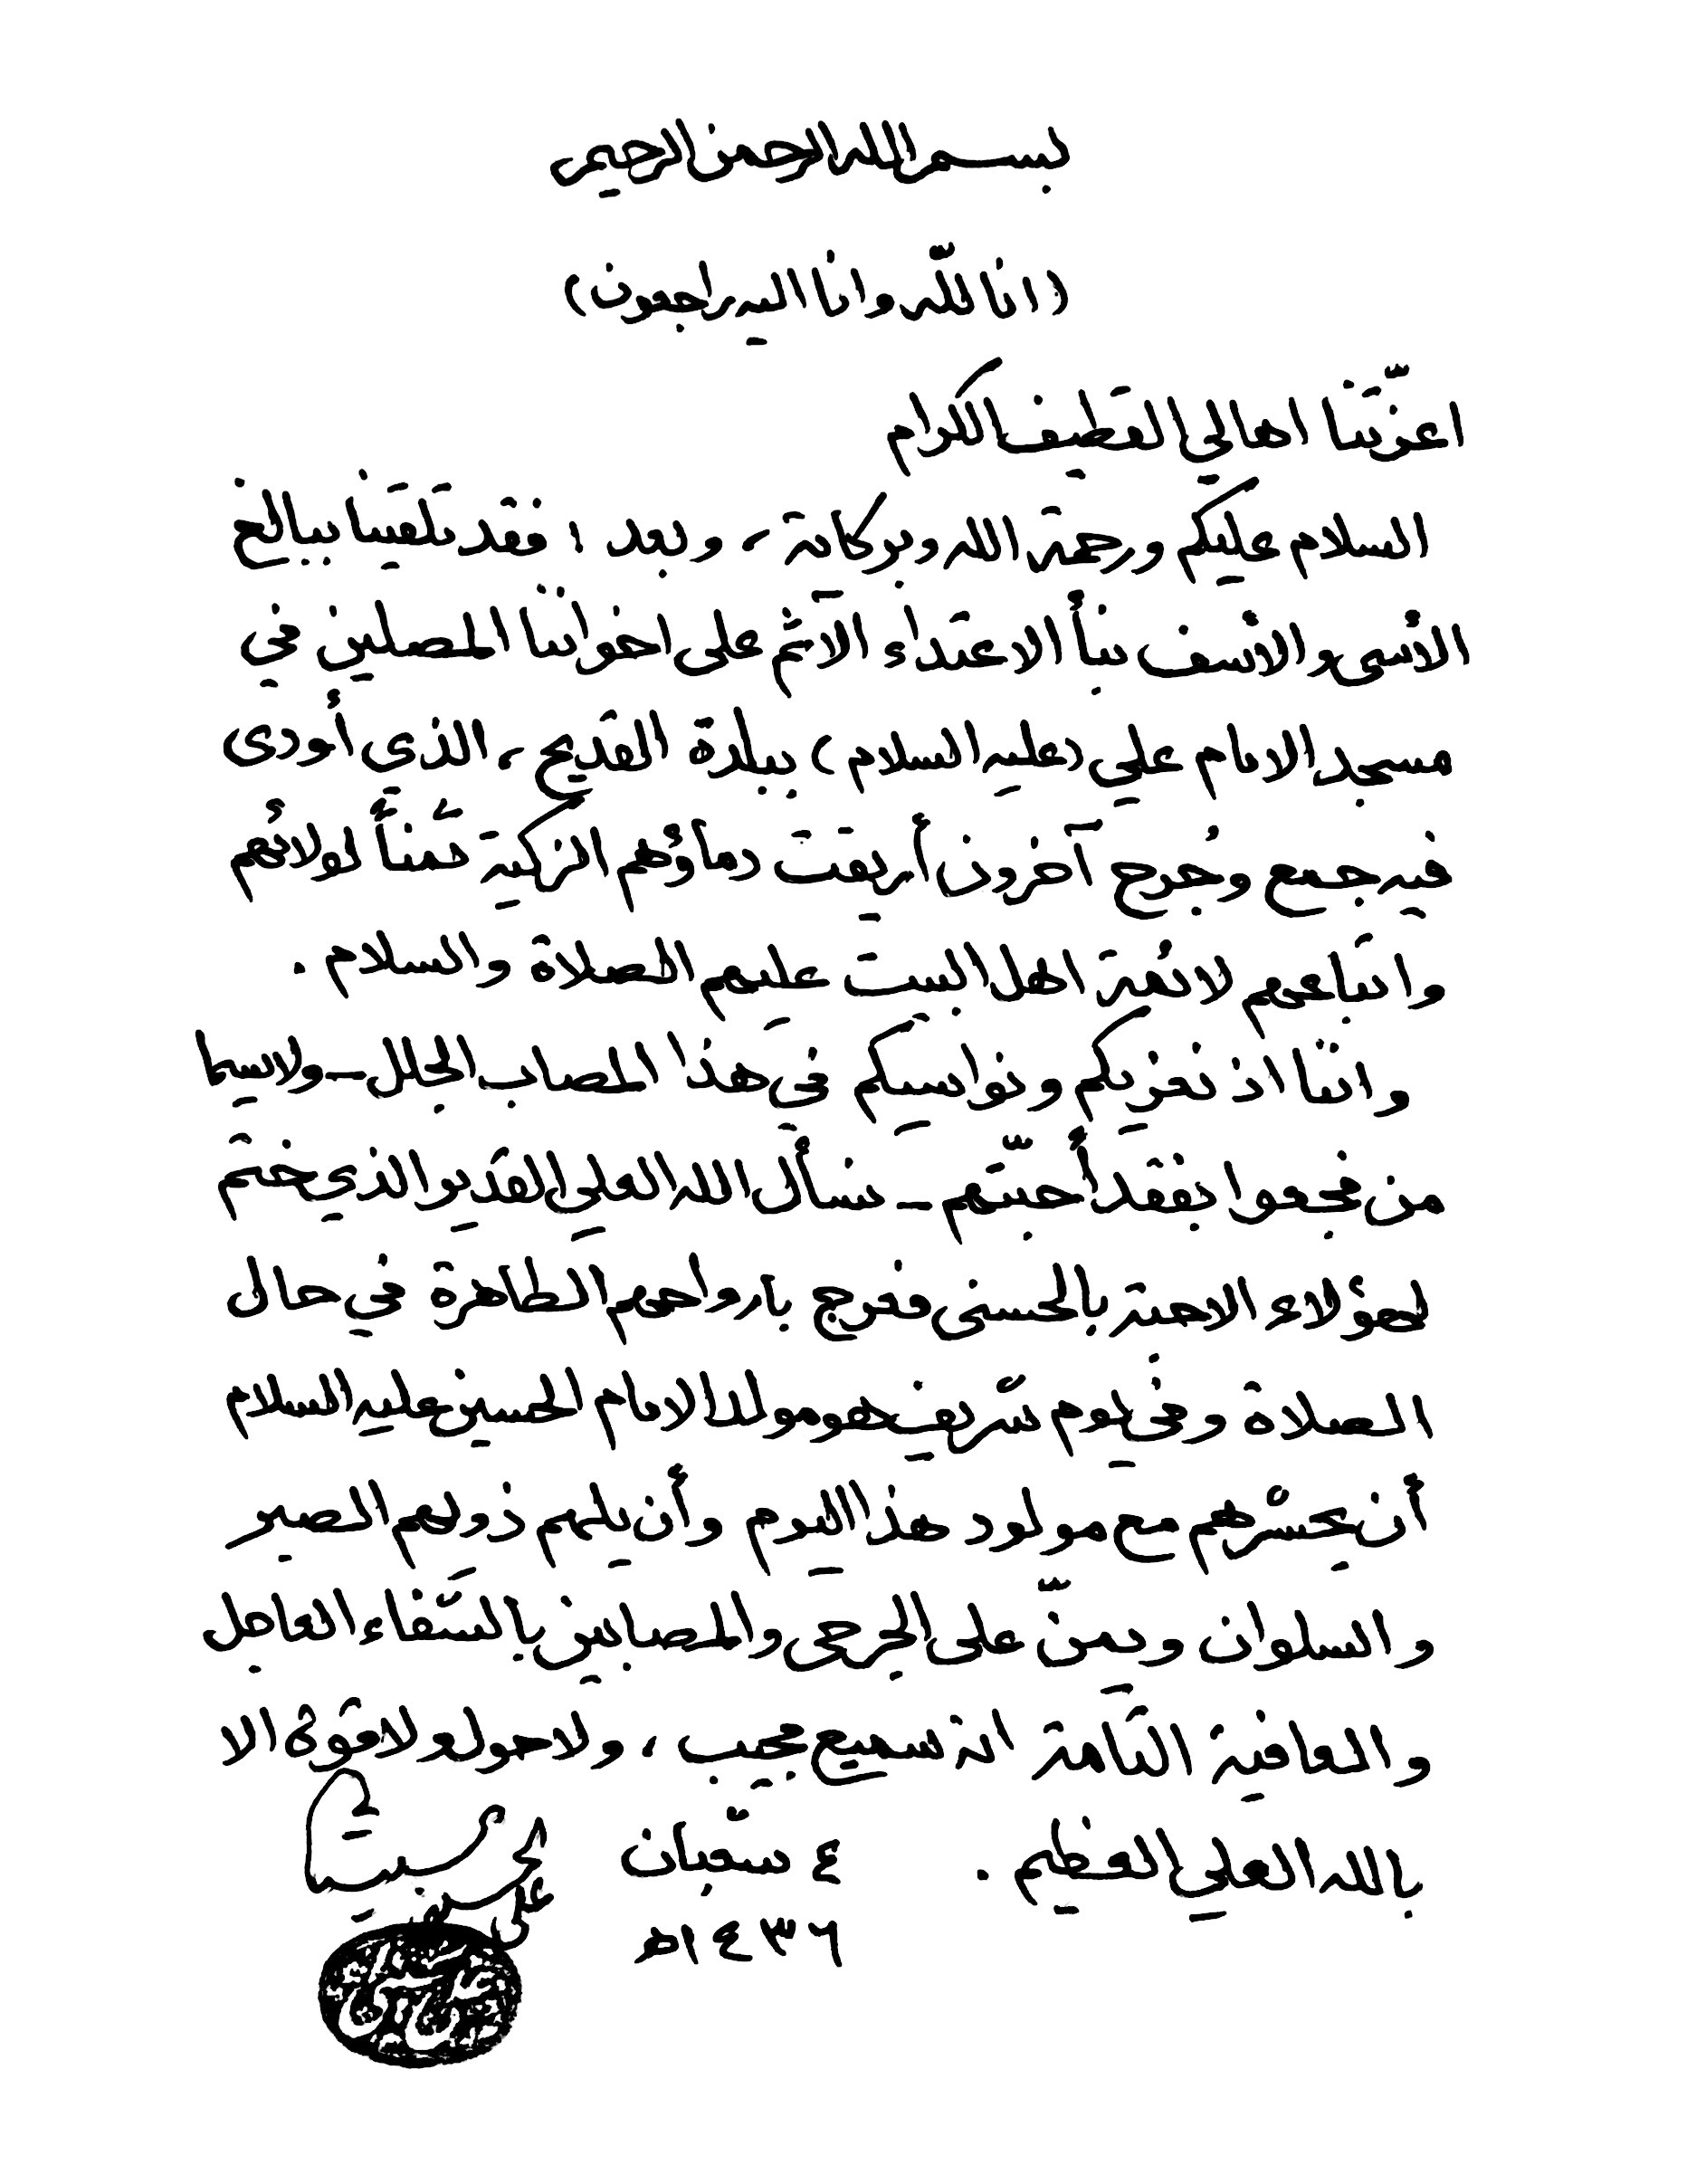 بسم الله الرحمن الرحيم
(انا للّه وانا اليه راجعون)
اعزّتنا اهالي القطيف الكرام
السلام عليكم ورحمة الله وبركاته، وبعد ؛ فقد تلقينا ببالغ
الأسى والأسف نبأ الاعتداء الآثم على اخواننا المصلين في
مسجد الامام علي (عليه السلام) ببلدة القديح، الذي أودى
فيه جمع وجُرح آخرون أريقت دماؤهم الزكية ثمناً لولائهم
واتباعهم لائمة اهل البيت عليهم الصلاة والسلام .
واننا اذ نعزيكم ونواسيكم في هذا المصاب الجلل ـ ولاسيما
من فجعوا بفقد أحبّتهم ـ نسأل الله العلي القدير الذي ختم
لهؤلاء الاحبة بالحسنى فعرج بارواحهم الطاهرة في حال
الصلاة وفي يوم شريف هو مولد الامام الحسين عليه السلام
أن يحشرهم مع مولود هذا اليوم وأن يلهم ذويهم الصبر
والسلوان ويمنّ على الجرحى والمصابين بالشفاء العاجل
والعافية التامة انه سميع مجيب، ولا حول ولا قوة الا
بالله العلي العظيم . ٤ شعبان
١٤٣٦هـ
علي الحسيني